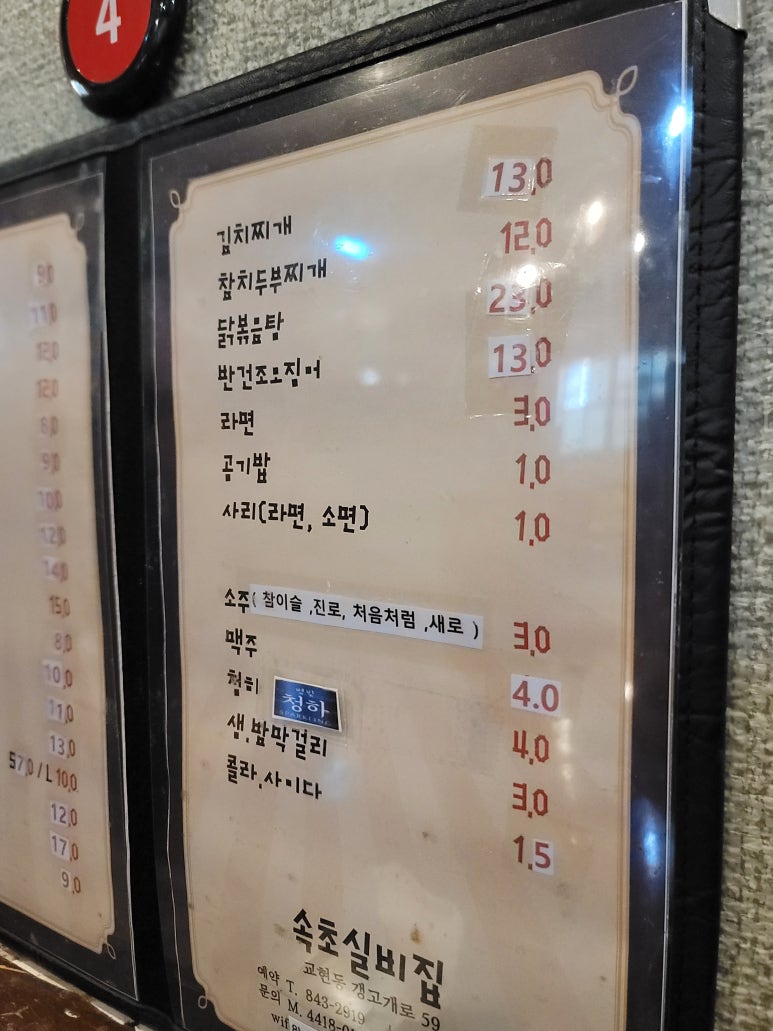 4
9,0
11,0
12,0
12,0
8,0
9,0
10,0
12,0
14,0
15,0
8,0
10,0
11,0
13,0
12,0
17,0
9,0
김치찌개 13,0
참치두부찌개 12,0
닭볶음탕 23,0
반건조오징어 13,0
라면 3,0
공기밥 1,0
사리(라면, 소면) 1,0
소주( 참이슬 ,진로, 처음처럼 ,새로 ) 3,0
맥주 4.0
청하 별빛 청하 SPARKLING 4,0
생,밤막걸리 3,0
콜라,사이다 1,5
속초실비집
교현동 갱고개로 59
예약 T. 843-2919
문의 M. 4418-
wifi